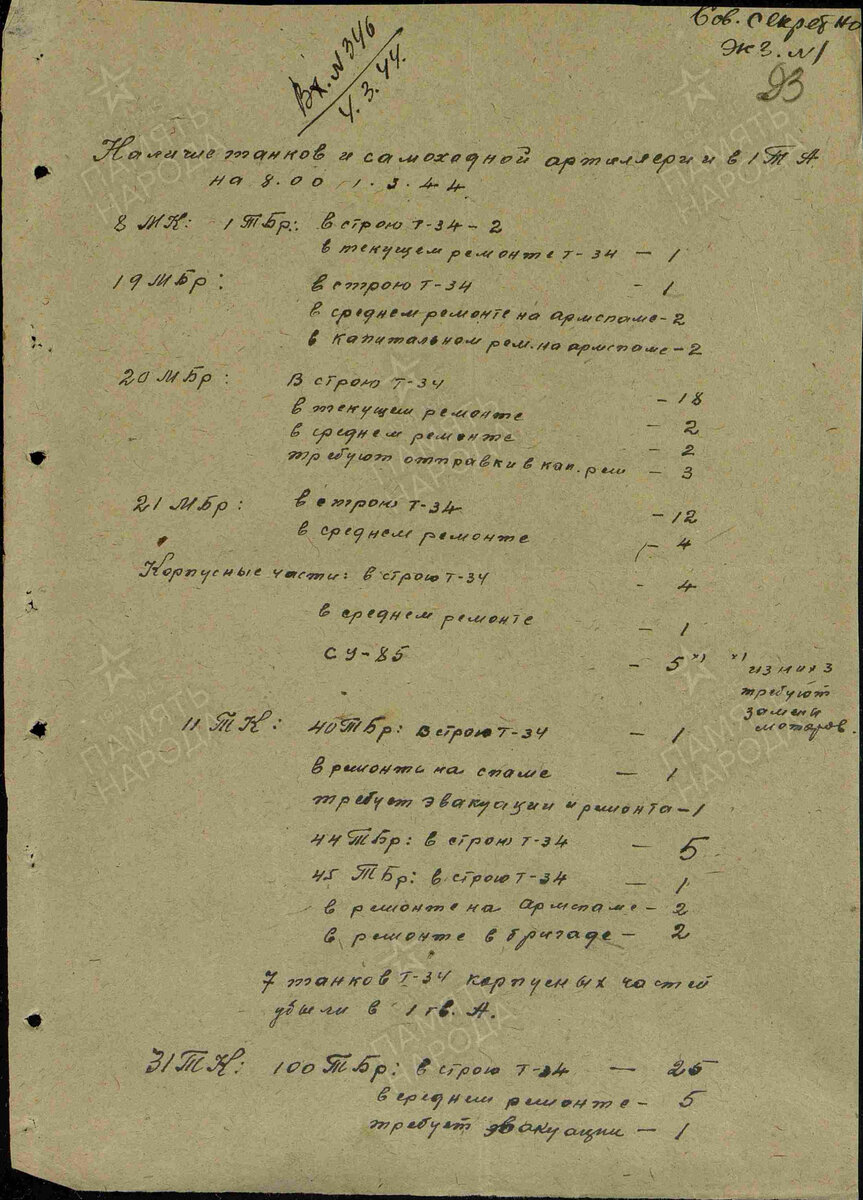 Сов. секретно
Экз. №1
Вх. №346
4.3.44.
93
Наличие танков и самоходной артиллерии в 1 ТА
на 8.00 1.3.44
8 МК: 1 ТБр: в строю Т-34 - 2
в текущем ремонте Т-34 - 1
19 МБр: в строю Т-34 - 1
в среднем ремонте на армспаме - 2
в капитальном рем. на армспаме - 2
20 МБр: В строю Т-34 - 18
в текущем ремонте - 2
в среднем ремонте - 2
требуют отправки в кап. рем - 3
21 МБр: в строю Т-34 - 12
в среднем ремонте - 4
Корпусные части: в строю Т-34 - 4
в среднем ремонте - 1
СУ-85 - 5 х) х) из них 3
требуют
замены
моторов.
11 ТК: 40 ТБр: в строю Т-34 - 1
в ремонте на спаме - 1
требует эвакуации и ремонта - 1
44 ТБр: в строю Т-34 - 5
45 ТБр: в строю Т-34 - 1
в ремонте на Армспаме - 2
в ремонте в бригаде - 2
7 танков Т-34 корпусных частей
убыли в 1 гв. А.
31 ТК: 100 ТБр: в строю Т-34 - 25
в среднем ремонте - 5
требует эвакуации - 1
ПАМЯТЬ НАРОДА